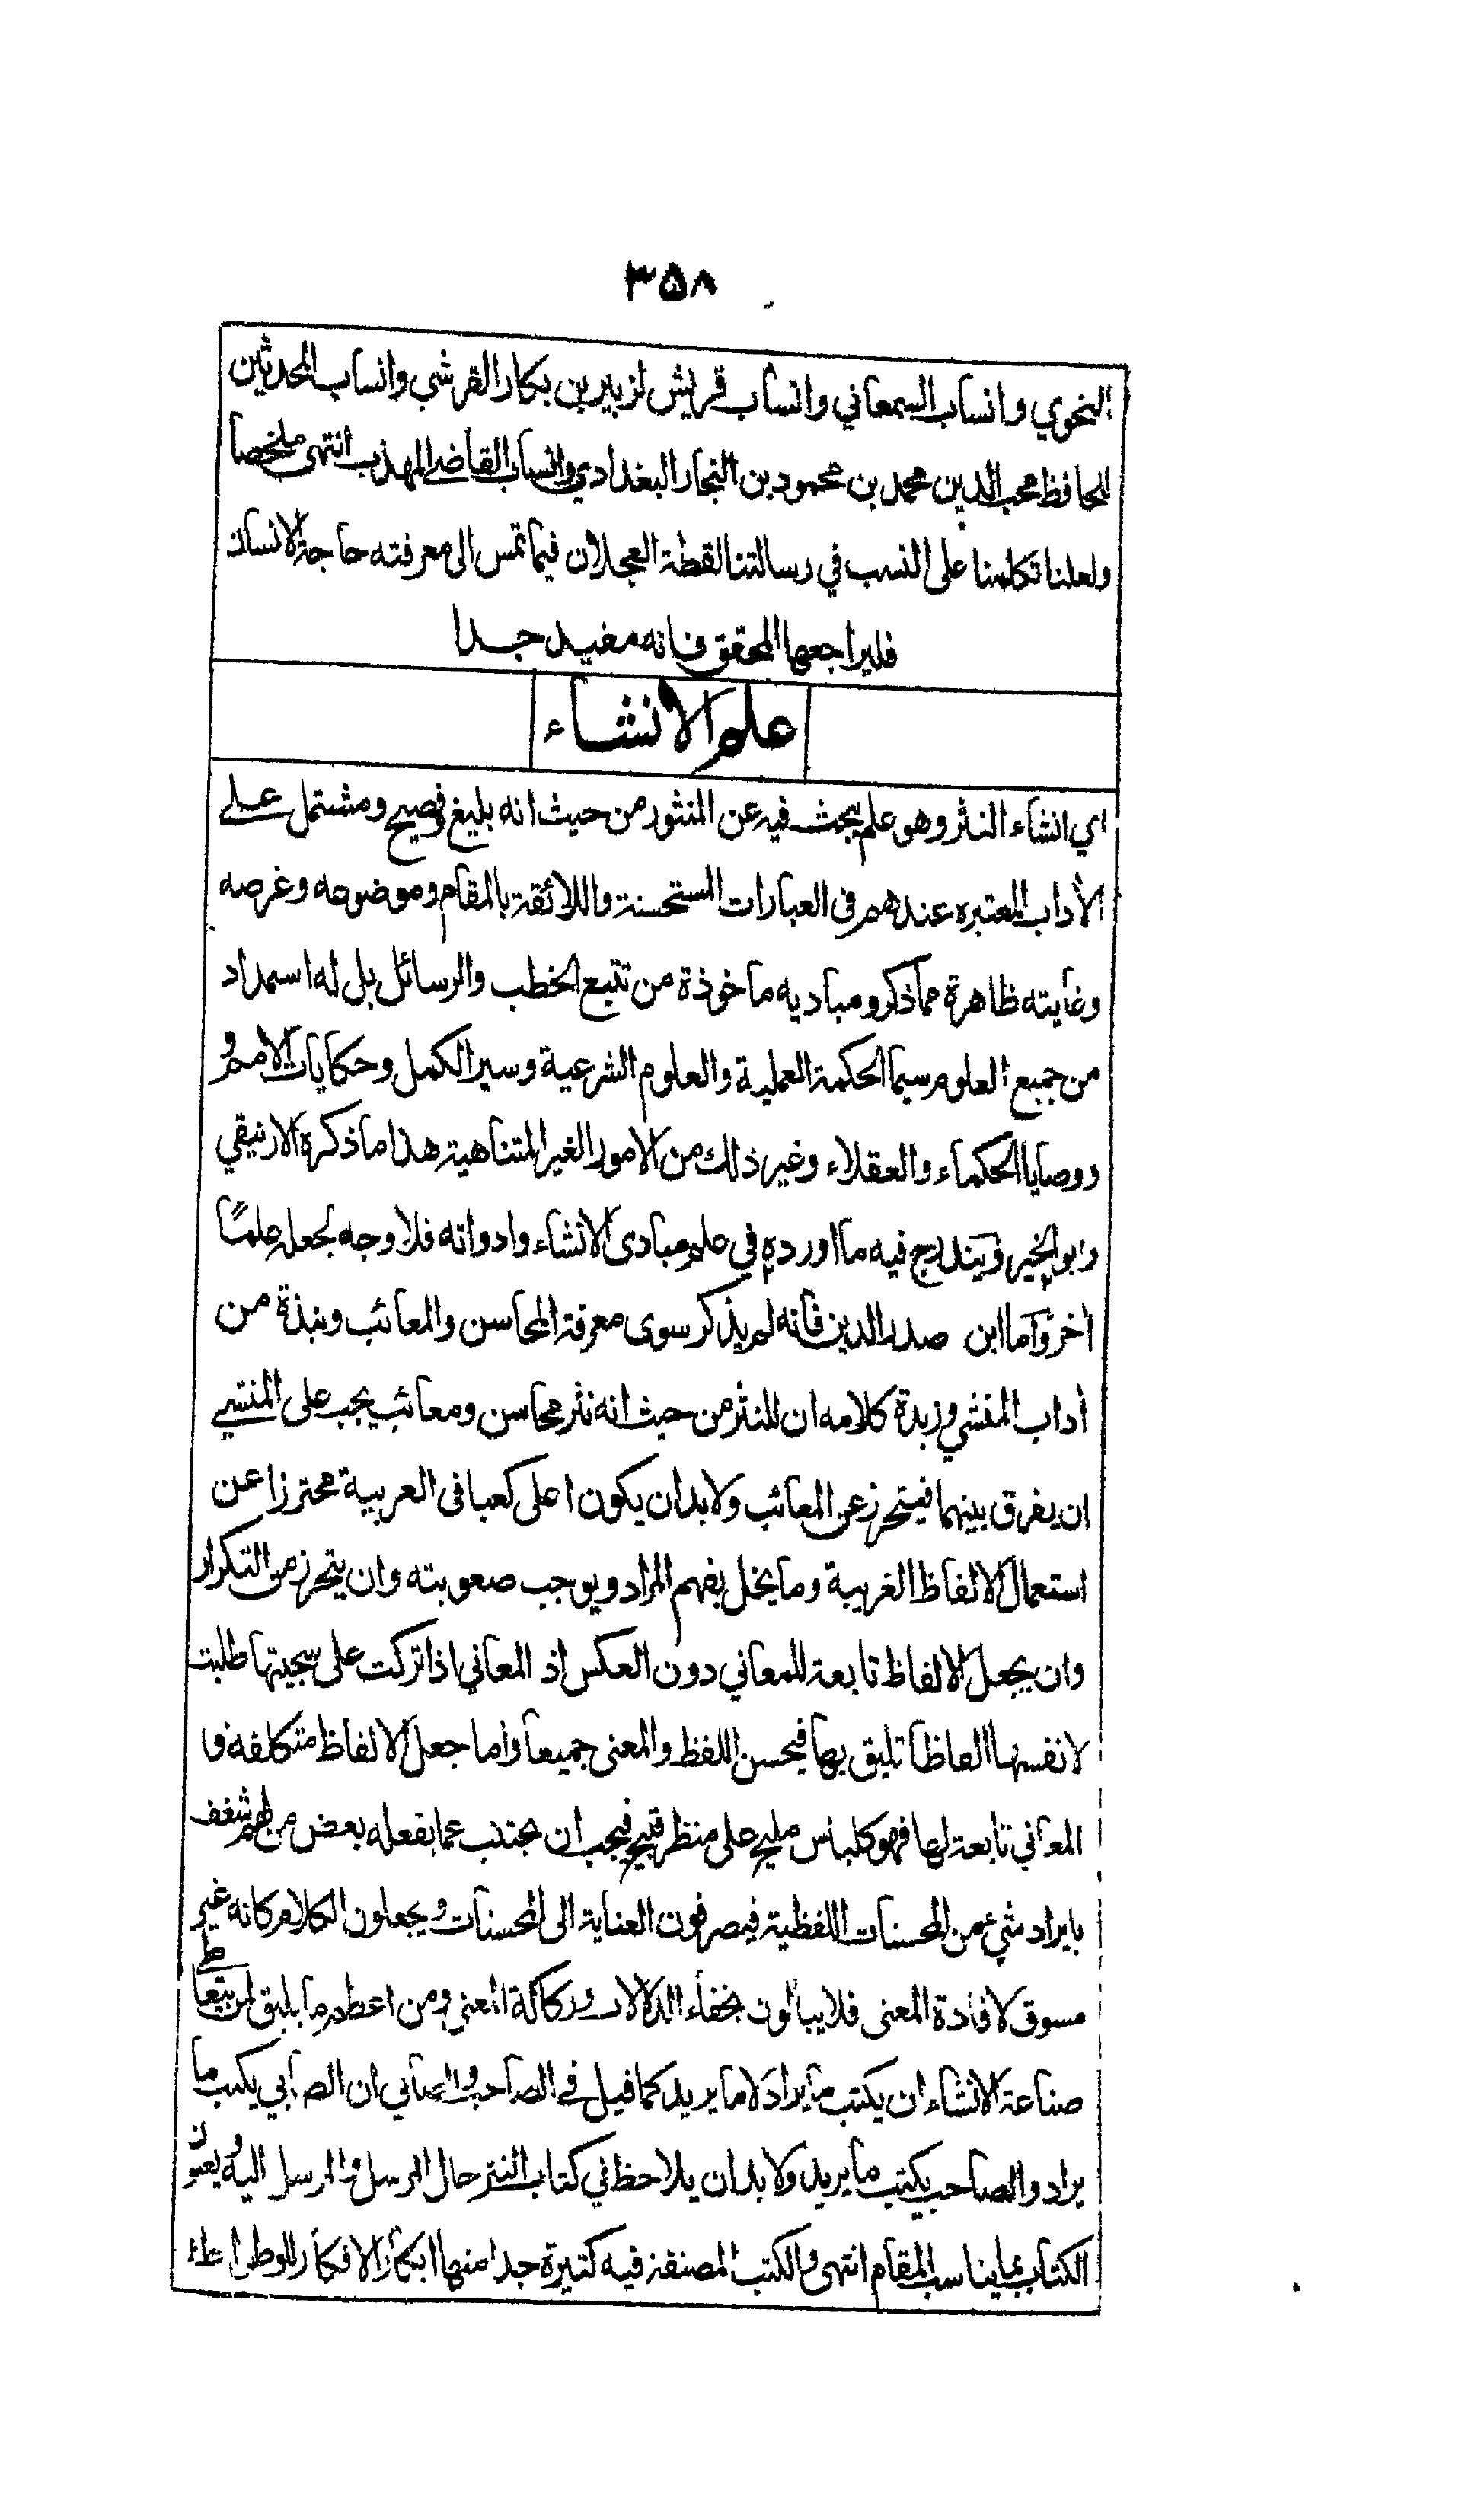 ٣٥٨
النحوي وانساب السمعاني وانساب قريش لزبير بن بكار القرشي وانساب المحدثين
للحافظ محب الدين محمد بن محمود بن النجار البغدادي وانساب القاضي المهذب انتهى ملخصا
ولعلنا تكلمنا على النسب في رسالتنا لقطة العجلان فيما تمس الى معرفته حاجة الانسان
فليراجعها المحقق فانه مفيد جدا
علم الانشاء
اي انشاء النثر وهو علم يبحث فيه عن المنثور من حيث انه بليغ فصيح ومشتمل على
الأداب المعتبره عندهم في العبارات المستحسنة واللائقة بالمقام وموضوعه وغرضه
وغايته ظاهرة مما ذكر ومباديه ماخوذة من تتبع الخطب والرسائل بل له استمداد
من جميع العلوم سيما الحكمة العملية والعلوم الشرعية وسير الكمل وحكايات الامم و
ووصايا الحكماء والعقلاء وغير ذلك من الامور الغير المتناهية هذا ما ذكره الارنيقي
وابو الخير ويندرج فيه ما اورده في علم مبادى الانشاء وادواته فلا وجه لجعله علمًا
أخر وأما ابن صدر الدين فانه لم يذكر سوى معرفة المحاسن والمعائب ونبذة من
أداب المنشي وزبدة كلامه ان للنثر من حيث انه نثر محاسن ومعائب يجب على المنشي
ان يفرق بينهما فيتحرز عن المعائب ولا بد ان يكون اعلى كعبا في العربية محترزا عن
استعمال الالفاظ الغريبة وما يخل بفهم المراد ويوجب صعوبته وان يتحرز من التكرار
وان يجعل الالفاظ تابعة للمعاني دون العكس اذ المعاني اذا تركت على سجيتها طلبت
لانفسها الفاظا تليق بها فيحسن اللفظ والمعنى جميعا واما جعل الالفاظ متكلفة و
المعاني تابعة لها فهو كلباس مليح على منظر قبيح فيجب ان يجتنب عما يفعله بعض من لهم شغف
بايراد شيء من المحسنات اللفظية فيصرفون العناية الى المحسنات ويجعلون الكلام كانه غير
مسوق لافادة المعنى فلا يبالون بخفاء الدلالات وركاكة المعنى ومن اعظم ما يليق لمن يتعاطى
صناعة الانشاء ان يكتب ما يراد لا ما يريد كما قيل في الصاحب والصابي ان الصابي يكتب ما
يراد والصاحب يكتب ما يريد ولا بد ان يلاحظ في كتاب النثر حال المرسل والمرسل اليه ويعنون
الكتاب بما يناسب المقام انتهى والكتب المصنفة فيه كثيرة جدا منها ابكار الافكار للوطواط